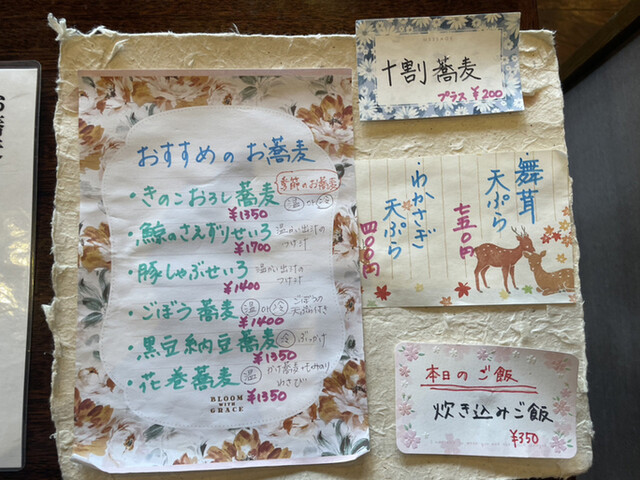 おすすめの お蕎麦
・きのこおろし蕎麦 季節のお蕎麦
¥1350 温 or 冷
・鯨のさえずりせいろ 温かい出汁の
¥1700 つけ汁
・豚しゃぶせいろ 温かい出汁の
¥1400 つけ汁
・ごぼう蕎麦 温 or 冷 ごぼうの
¥1400 天ぷら付き
・黒豆納豆蕎麦 冷 ぶっかけ
¥1350
・花巻蕎麦 温 かけ蕎麦
¥1350 わさび
BLOOM
WITH
GRACE
十割蕎麦
プラス ¥200
・舞茸
天ぷら
七五〇円
・わかさぎ
天ぷら
四〇〇円
本日のご飯
炊き込みご飯
¥350